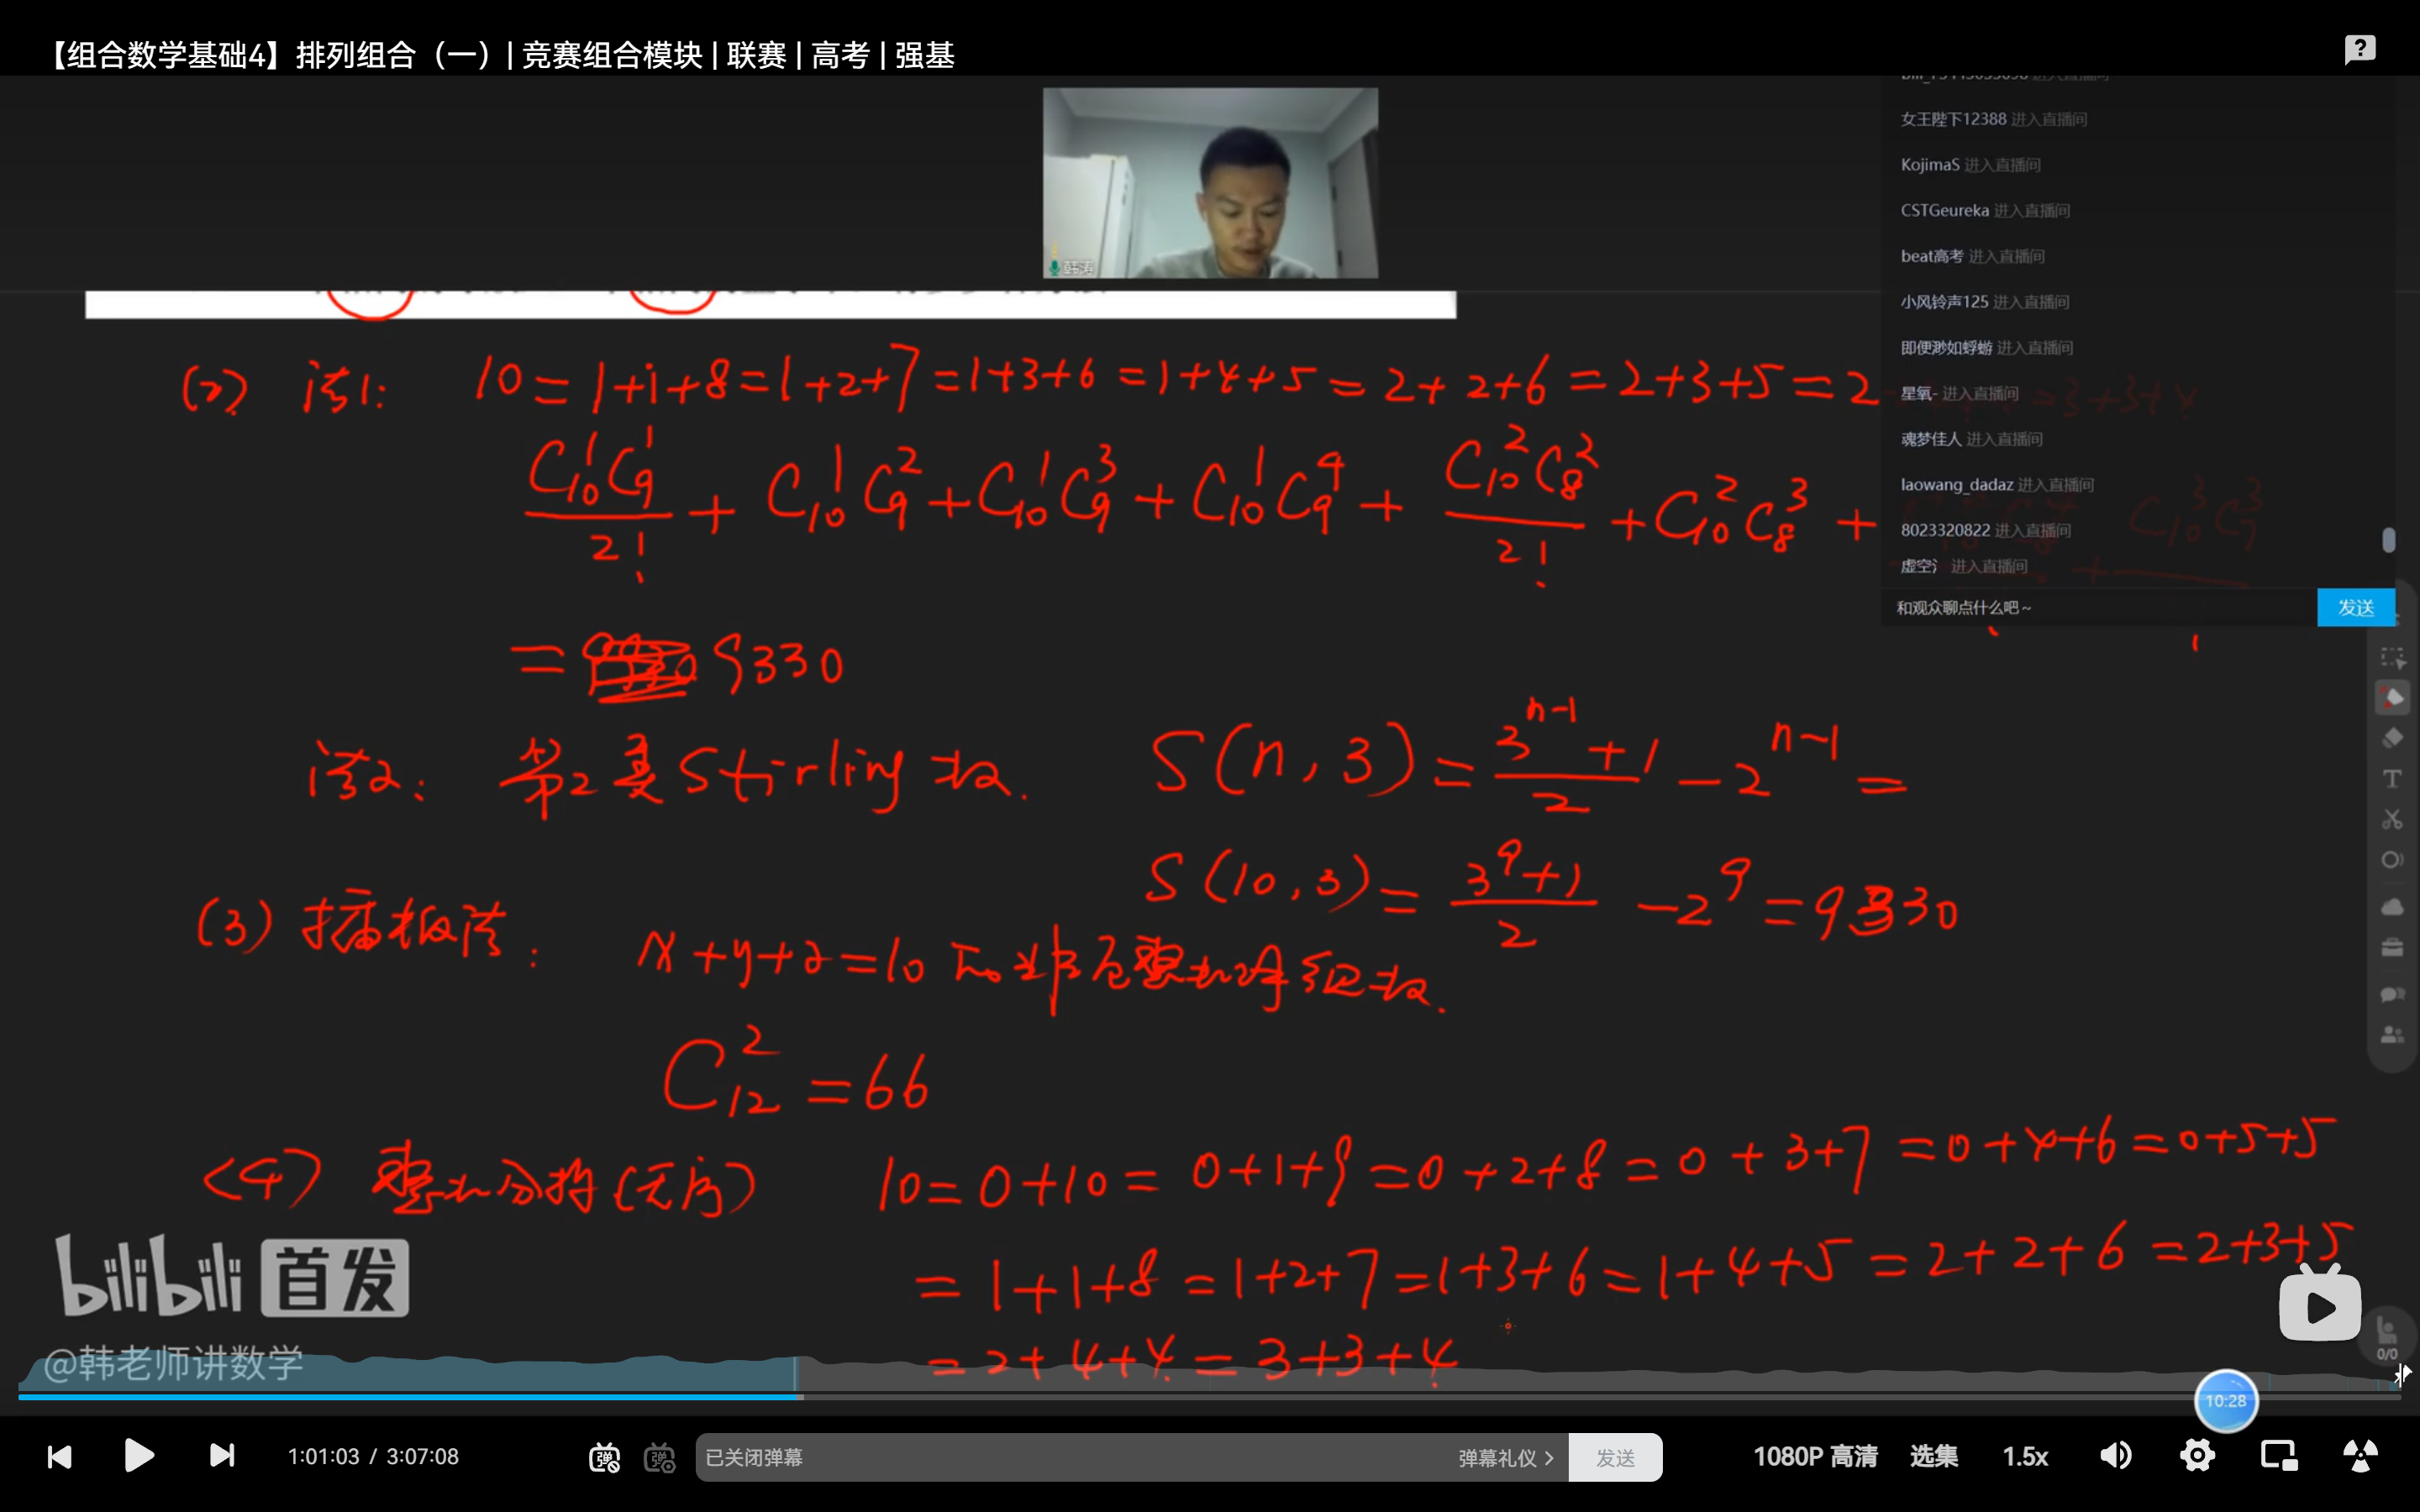 【组合数学基础4】排列组合（一）| 竞赛组合模块 | 联赛 | 高考 | 强基
女王陛下12388 进入直播间
KojimaS 进入直播间
CSTGeureka 进入直播间
beat高考 进入直播间
小风铃声125 进入直播间
即便渺如蜉蝣 进入直播间
星氧- 进入直播间
魂梦佳人 进入直播间
laowang_dadaz 进入直播间
8023320822 进入直播间
虚空氵 进入直播间
和观众聊点什么吧～
发送
韩涛
(2) 法1: 10=1+1+8=1+2+7=1+3+6=1+4+5=2+2+6=2+3+5=2 =3+3+4
C₁₀¹C₉¹/2! + C₁₀¹C₉² + C₁₀¹C₉³ + C₁₀¹C₉⁴ + C₁₀²C₈²/2! + C₁₀²C₈³ + + C₁₀³C₇³
= 9330
法2: 第2类Stirling数. S(n,3) = (3ⁿ⁻¹+1)/2 - 2ⁿ⁻¹ =
S(10,3) = (3⁹+1)/2 - 2⁹ = 9330
(3) 插板法: x+y+z=10 的非负整数解组数.
C₁₂² = 66
(4) 整数分拆(无序) 10=0+10=0+1+9=0+2+8=0+3+7=0+4+6=0+5+5
=1+1+8=1+2+7=1+3+6=1+4+5=2+2+6=2+3+5
=2+4+4=3+3+4
bilibili 首发
@韩老师讲数学
0/0
10:28
1:01:03 / 3:07:08
已关闭弹幕
弹幕礼仪 >
发送
1080P 高清
选集
1.5x